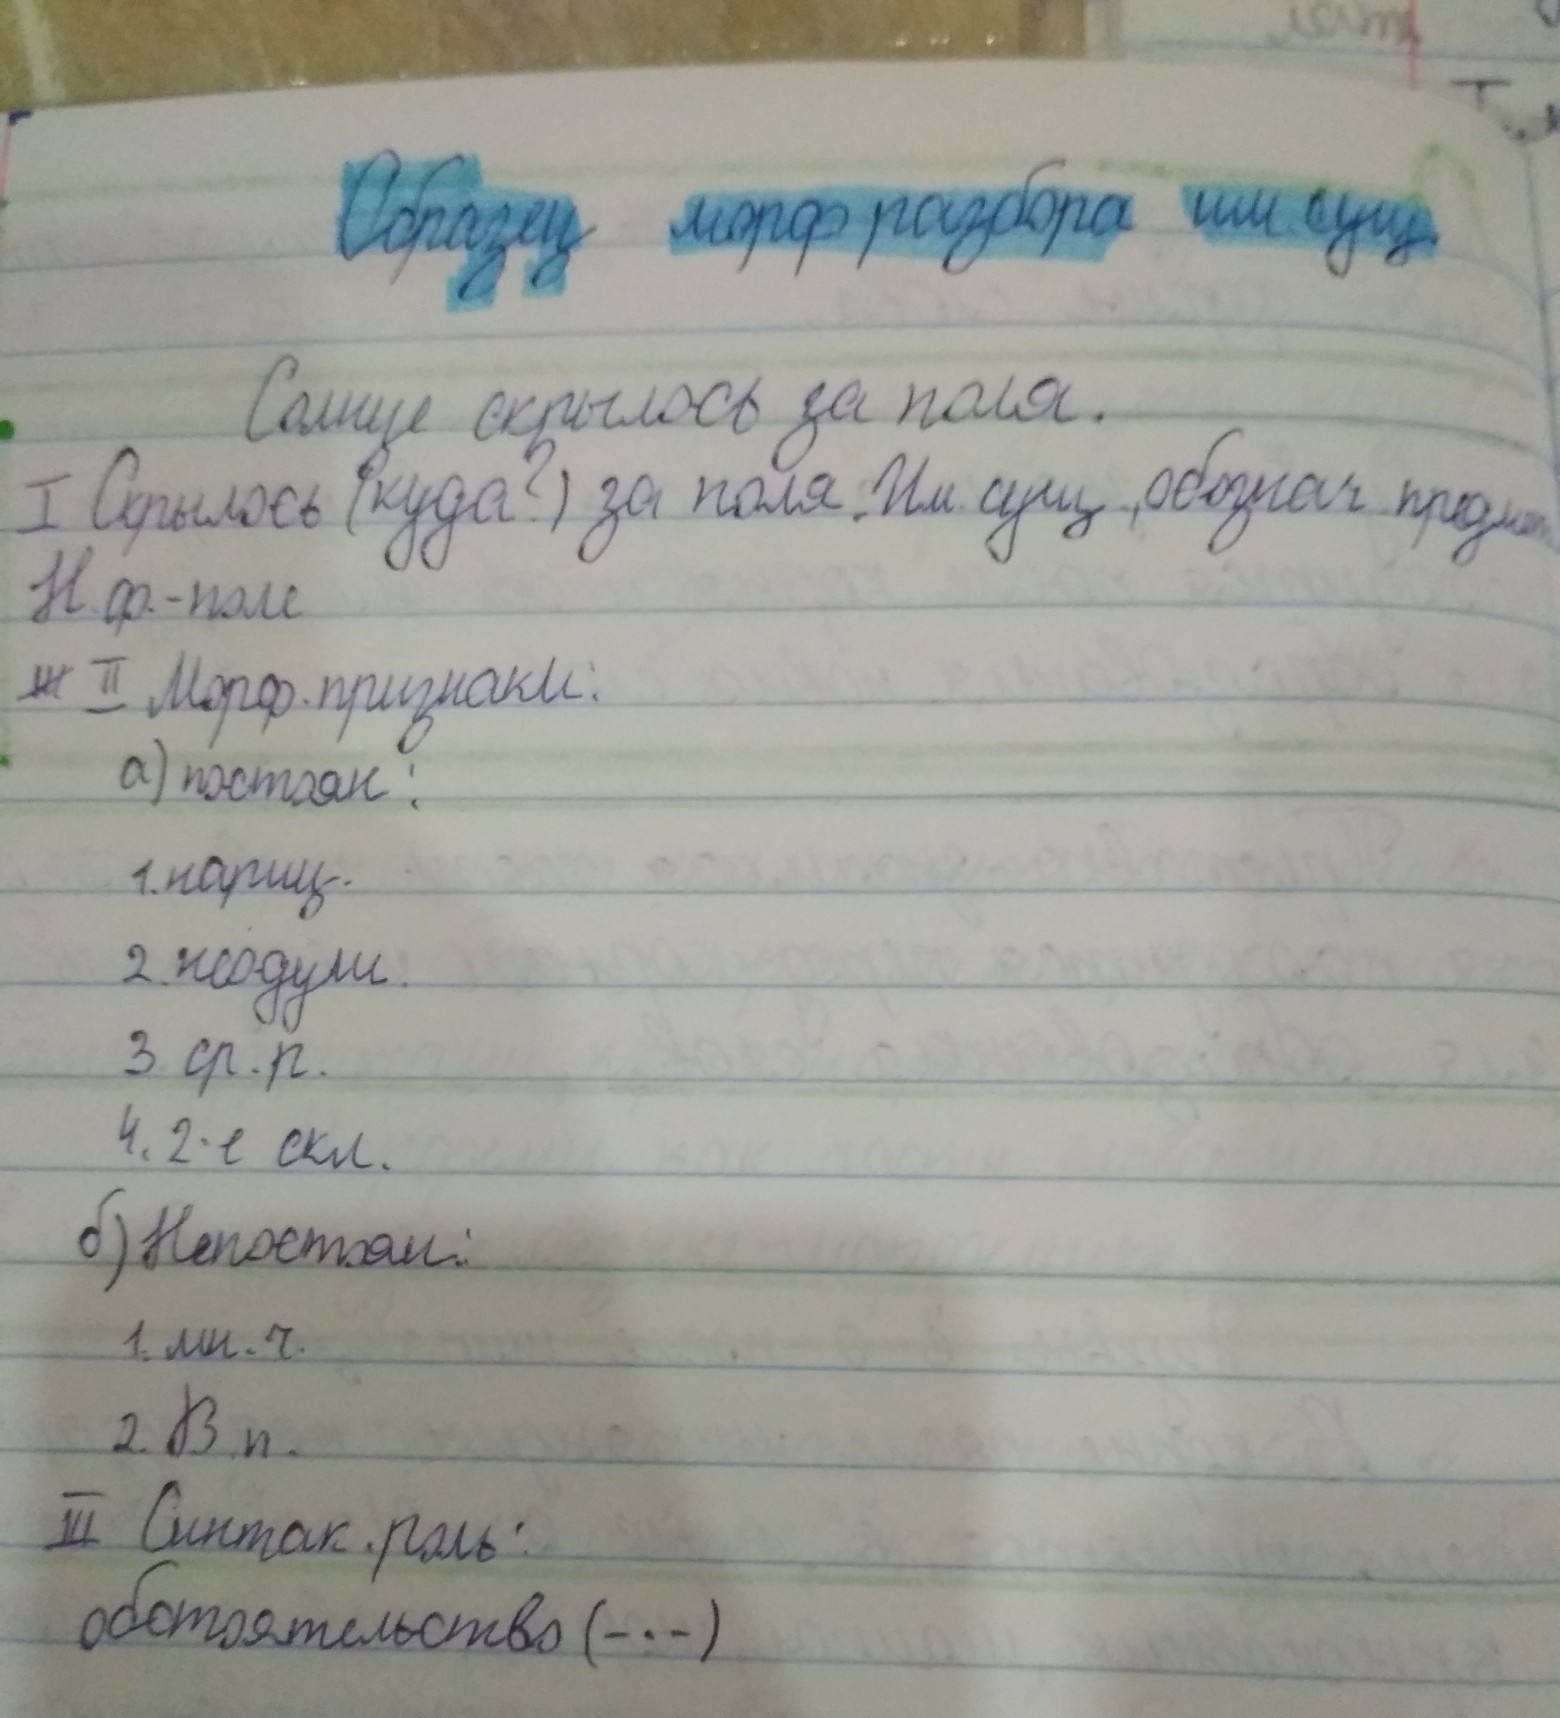 Образец морф разбора им. сущ.
Солнце скрылось за поля.
I Скрылось (куда?) за поля. Им. сущ., обознач. предмет
Н.ф.-поле
II Морф. признаки:
а) постоян:
1. нариц.
2. неодуш.
3. ср. р.
4. 2-е скл.
б) Непостоян:
1. мн. ч.
2. В.п.
III Синтак. роль:
обстоятельство (-.-)